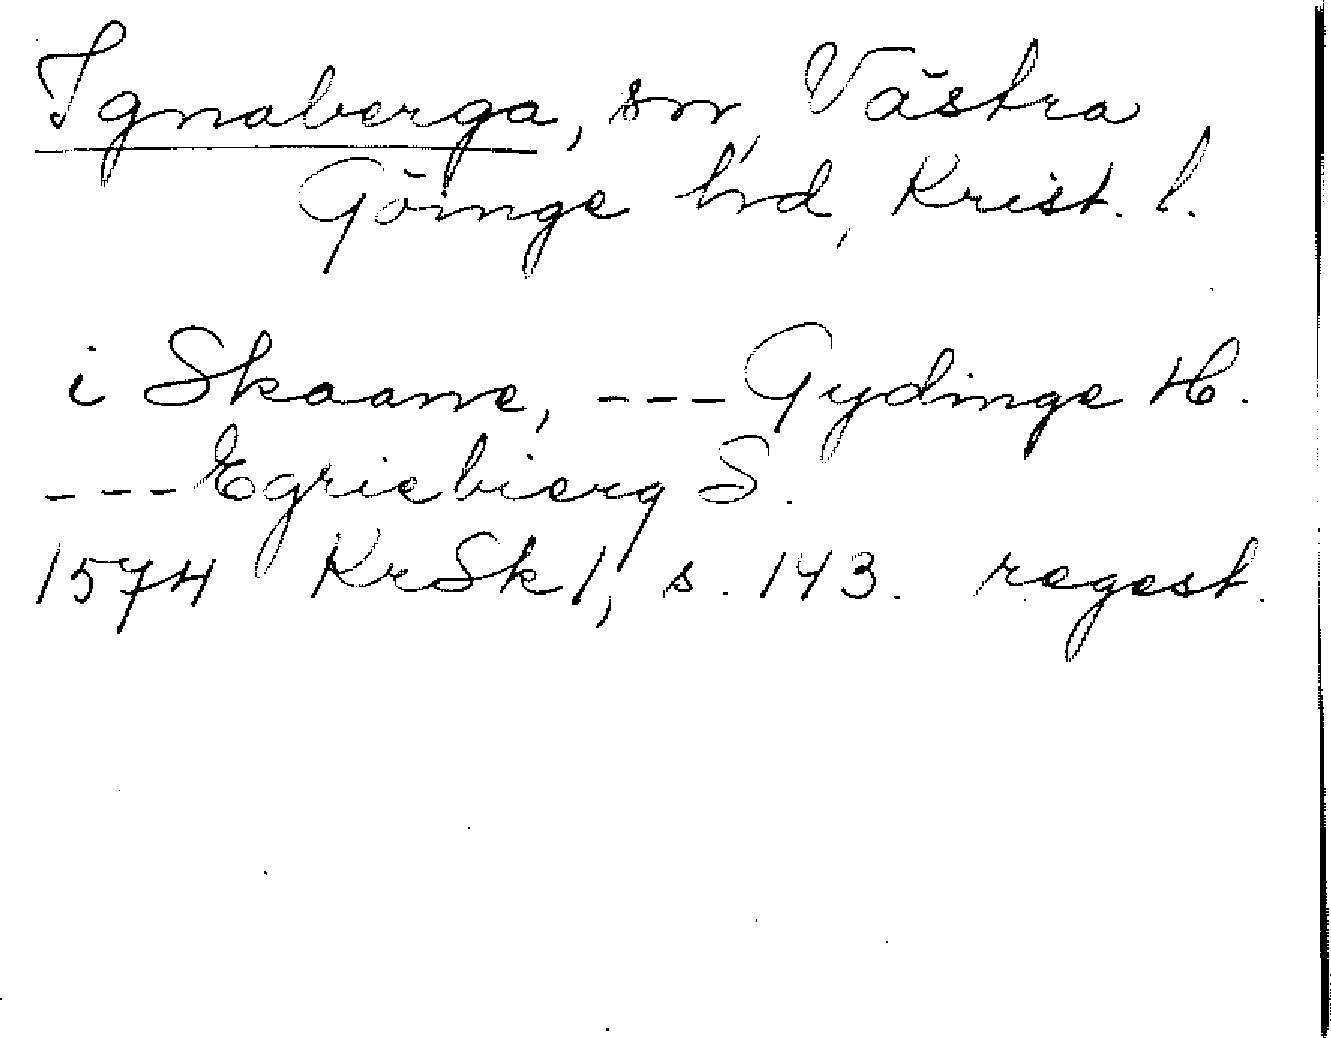 Ignaberga, sn, Västra
Göinge hd, Krist. l.
i Skaane, --- Gydinge H.
--- Egriebierg S.
1574 KrSk1, s. 143. regest.